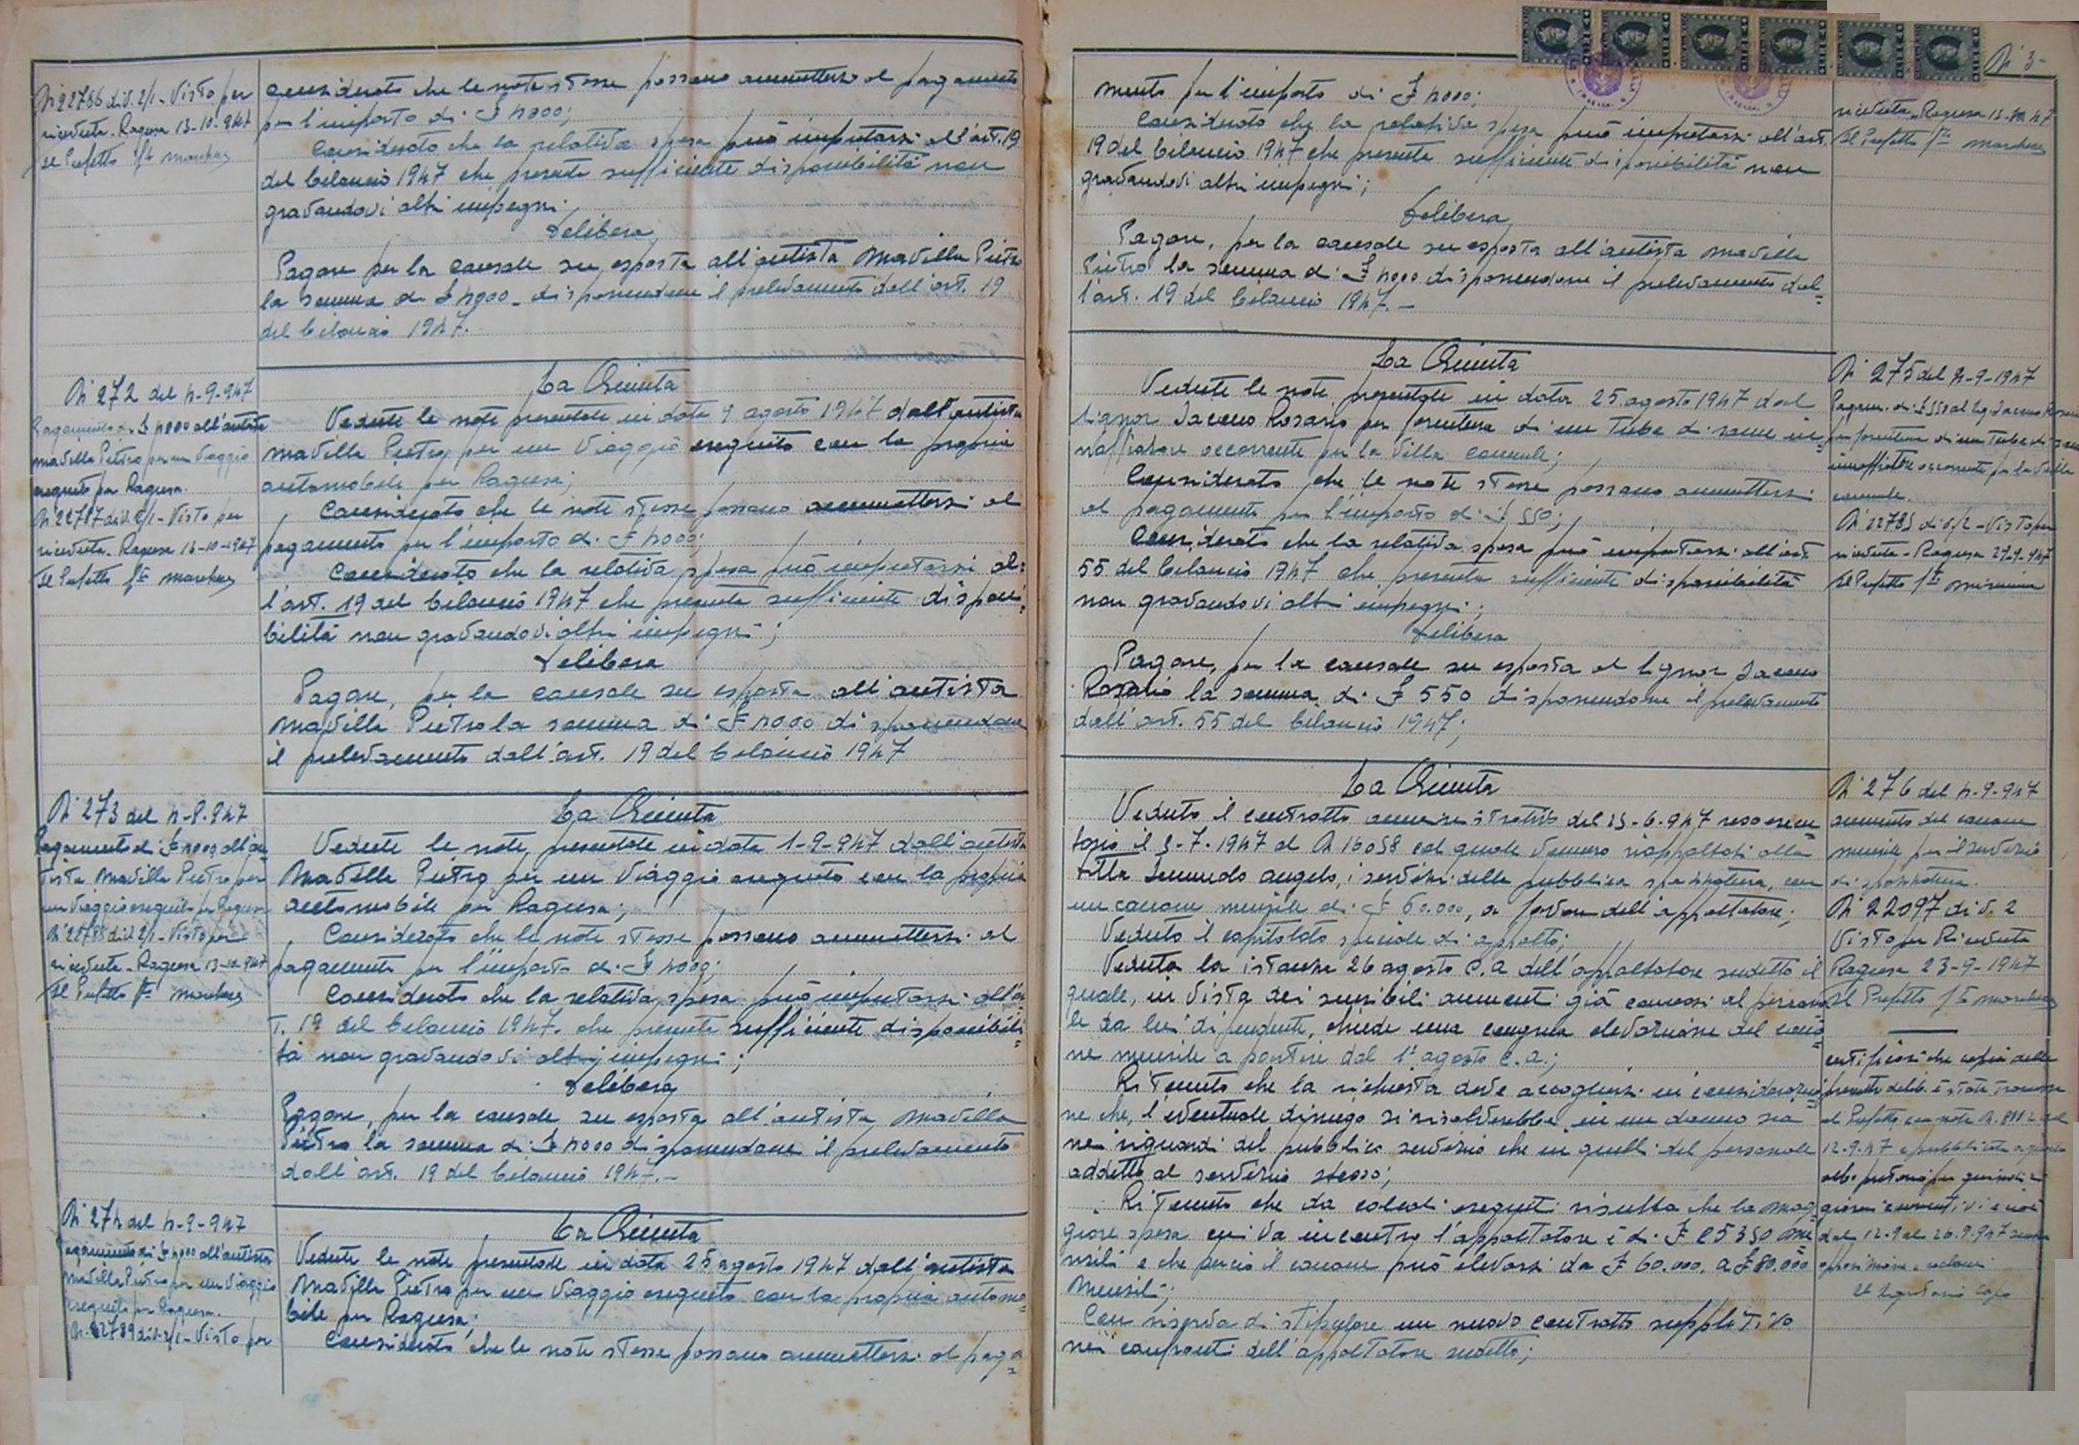 N° 22786 div. 2/1 - Visto per
ricevuta - Ragusa 13-10-947
Il Prefetto
considerato che le note stesse possano ammettersi al pagamento
per l'importo di £ 4000;
Considerato che la relativa spesa può imputarsi all'art. 19
del bilancio 1947 che presenta sufficiente disponibilità non
gravandovi altri impegni.
Delibera
Pagare per la causale su esposta all'autista Mavilla Pietro
la somma di £ 4000 - disponendone il prelevamento dall'art. 19
del bilancio 1947.
N° 272 del 4-9-947
Pagamento di £ 4000 all'autista
Mavilla Pietro per un viaggio
eseguito per Ragusa.
N° 22787 div. 2/1 - Visto per
ricevuta - Ragusa 13-10-1947
Il Prefetto
La Giunta
Vedute le note presentate in data 9 agosto 1947 dall'autista
Mavilla Pietro per un viaggio eseguito con la propria
automobile per Ragusa;
Considerato che le note stesse possano ammettersi al
pagamento per l'importo di £ 4000;
Considerato che la relativa spesa può imputarsi al=
l'art. 19 del bilancio 1947 che presenta sufficiente disponi=
bilità non gravandovi altri impegni;
Delibera
Pagare, per la causale su esposta all'autista
Mavilla Pietro la somma di £ 4000 disponendone
il prelevamento dall'art. 19 del bilancio 1947
N° 273 del 4-9-947
Pagamento di £ 4000 all'au=
tista Mavilla Pietro per
un viaggio eseguito per Ragusa
N° 22788 div. 2/1 - Visto per
ricevuta - Ragusa 13-10-947
Il Prefetto
La Giunta
Vedute le note presentate in data 1-9-947 dall'autista
Mavilla Pietro per un viaggio eseguito con la propria
automobile per Ragusa;
Considerato che le note stesse possano ammettersi al
pagamento per l'importo di £ 4000;
Considerato che la relativa spesa può imputarsi all'ar
t. 19 del bilancio 1947 che presenta sufficiente disponibili=
tà non gravandovi altri impegni;
Delibera
Pagare, per la causale su esposta all'autista Mavilla
Pietro la somma di £ 4000 disponendone il prelevamento
dall'art. 19 del bilancio 1947.-
N° 274 del 4-9-947
Pagamento di £ 4000 all'autista
Mavilla Pietro per un viaggio
eseguito per Ragusa.
N. 22789 div. 2/1 - Visto per
La Giunta
Vedute le note presentate in data 25 agosto 1947 dall'autista
Mavilla Pietro per un viaggio eseguito con la propria automo=
bile per Ragusa;
Considerato che le note stesse possano ammettersi al paga=
N° 3-
mento per l'importo di £ 4000;
Considerato che la relativa spesa può imputarsi all'art.
19 del bilancio 1947 che presenta sufficiente disponibilità non
gravandovi altri impegni;
Delibera
Pagare, per la causale su esposta all'autista Mavilla
Pietro la somma di £ 4000 disponendone il prelevamento dal=
l'art. 19 del bilancio 1947.-
ricevuta - Ragusa 13-10-47
Il Prefetto
La Giunta
Vedute le note presentate in data 25 agosto 1947 dal
Signor Iacono Rosario per fornitura di un tubo di rame in=
naffiatore occorrente per la Villa comunale;
Considerato che le note stesse possano ammettersi
al pagamento per l'importo di £ 550;
Considerato che la relativa spesa può imputarsi all'art.
55 del bilancio 1947 che presenta sufficiente disponibilità
non gravandovi altri impegni;
Delibera
Pagare, per la causale su esposta al Signor Iacono
Rosario la somma di £ 550 disponendone il prelevamento
dall'art. 55 del bilancio 1947;
N° 275 del 4-9-1947
Pagam. di £ 550 al Sig. Iacono Rosario
per fornitura di un tubo di rame
innaffiatore occorrente per la Villa
comunale.
Visto per
ricevuta - Ragusa 27.9.947
Il Prefetto
La Giunta
Veduto il contratto amministrativo del 25-6-947 reso esecu=
torio il 5-7-1947 al N 16058 col quale vennero riappaltati alla
ditta Angelo, i servizi della pubblica spazzatura, con
un canone mensile di £ 60.000, a favore dell'appaltatore;
Veduto il capitolato speciale di appalto;
Veduta la istanza 26 agosto c.a. dell'appaltatore sudetto il
quale, in vista dei sensibili aumenti già concessi al persona=
le da lui dipendente, chiede una congrua elevazione del cano=
ne mensile a partire dal 1° agosto c.a.;
Ritenuto che la richiesta deve accogliersi in considerazio=
ne che, l'eventuale diniego si risolverebbe in un danno sia
nei riguardi del pubblico servizio che in quelli del personale
addetto al servizio stesso;
Ritenuto che da calcoli eseguiti risulta che la mag=
giore spesa cui va incontro l'appaltatore è di £ 25350 me=
nsili e che perciò il canone può elevarsi da £ 60.000, a £ 80.000
mensili;
Con riserva di stipulare un nuovo contratto suppletivo
nei confronti dell'appaltatore sudetto;
N° 276 del 4-9-947
aumento del canone
mensile per il servizio
di spazzatura.
N° 22097 div. 2
Visto per Ricevuta
Ragusa 23-9-1947
Il Prefetto
certificasi che copia della
presente delib. è stata trasmessa
al Prefetto con nota
12-9-47 e pubblicata a questo
albo pretorio per quindici
giorni consecutivi e cioè
dal 12-9 al 26-9-947 senza
opposizioni e reclami
Il Segretario Capo